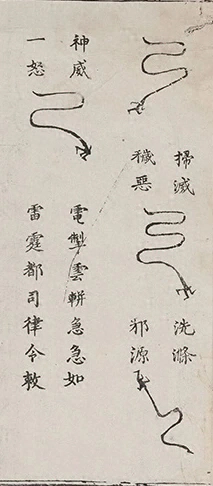 掃滅
穢惡
洗滌
邪源
神威
一怒
電掣雲軿急急如
雷霆都司律令敕